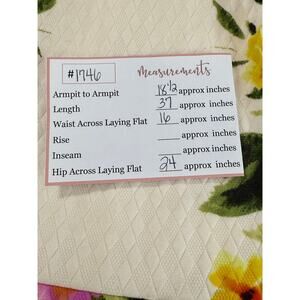 #1746 Measurements
Armpit to Armpit 18 1/2 approx inches
Length 37 approx inches
Waist Across Laying Flat 16 approx inches
Rise ___ approx inches
Inseam ___ approx inches
Hip Across Laying Flat 24 approx inches